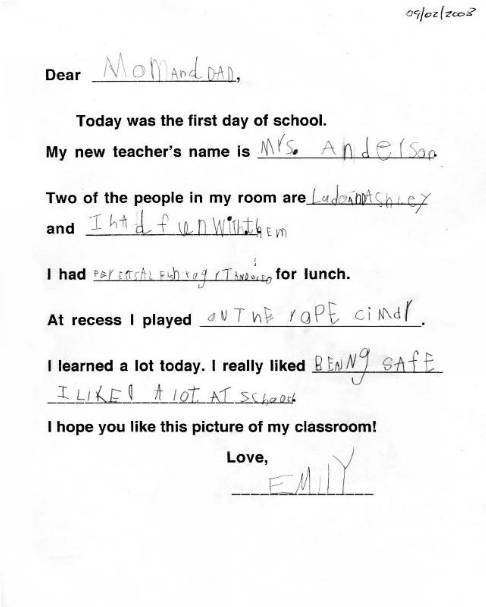 09/02/2008
Dear Mom and DAD,
Today was the first day of school.
My new teacher's name is Mrs. Anderson
Two of the people in my room are
and I had fun with them
I had for lunch.
At recess I played on The rope cimdr.
I learned a lot today. I really liked BEiNNg SAfE
I LIKED A lOT AT School
I hope you like this picture of my classroom!
Love,
EMilY